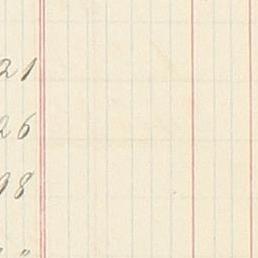 21
26
98
"